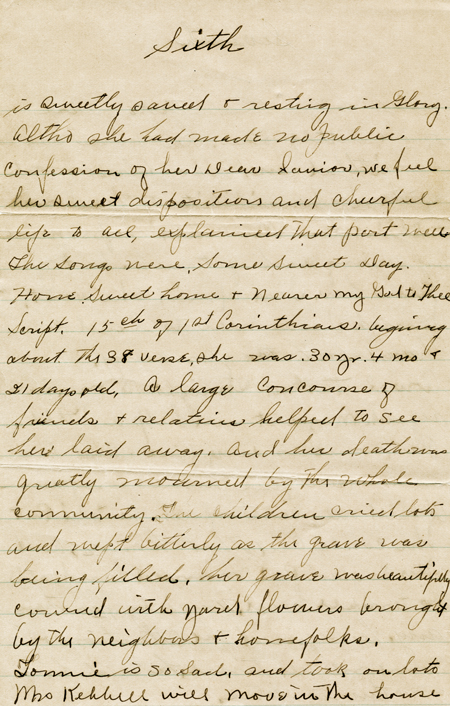 Sixth
is sweetly saved & resting in Glory.
Altho she had made no public
Confession of her Dear Savior, we feel
her sweet disposition and cheerful
life to all, explained that part well
The songs were, Some Sweet Day.
Home Sweet home & Nearer my God to Thee
Script. 15th of 1st Corinthians. begining
about the 38 verse, she was. 30 yr. 4 mo &
21 days old, A large Concourse of
friends & relatives helped to see
her laid away. And her death was
greatly mourned by the whole
community. The children cried lots
and wept bitterly as the grave was
being filled, her grave was beautifully
covered with yard flowers brought
by the neighbors & homefolks.
Tommie is so sad, and took on lots
Mrs will move in the house